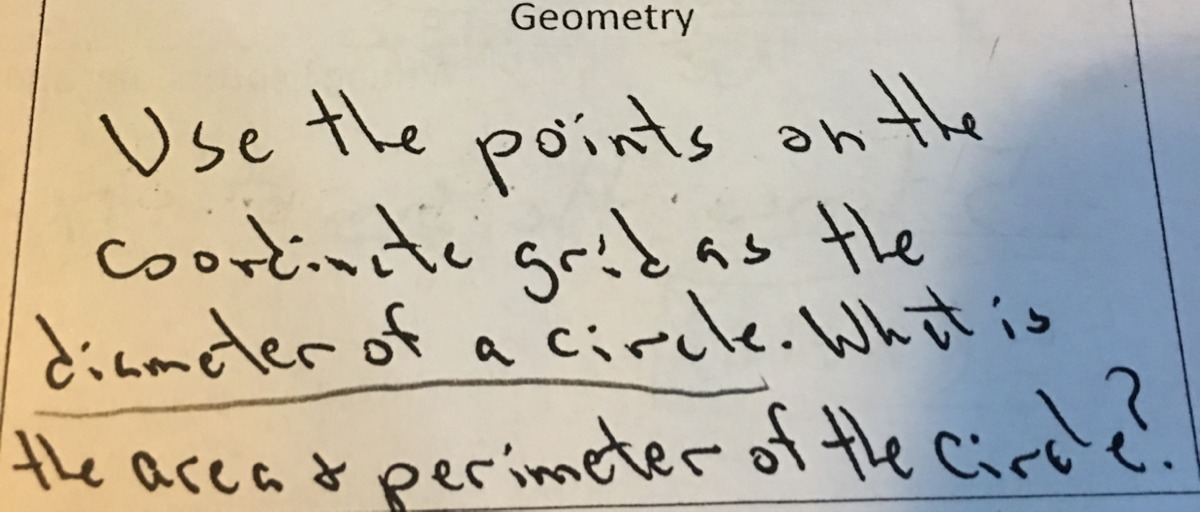 Geometry
Use the points on the
coordinate grid as the
diameter of a circle. What is
the area & perimeter of the circle?